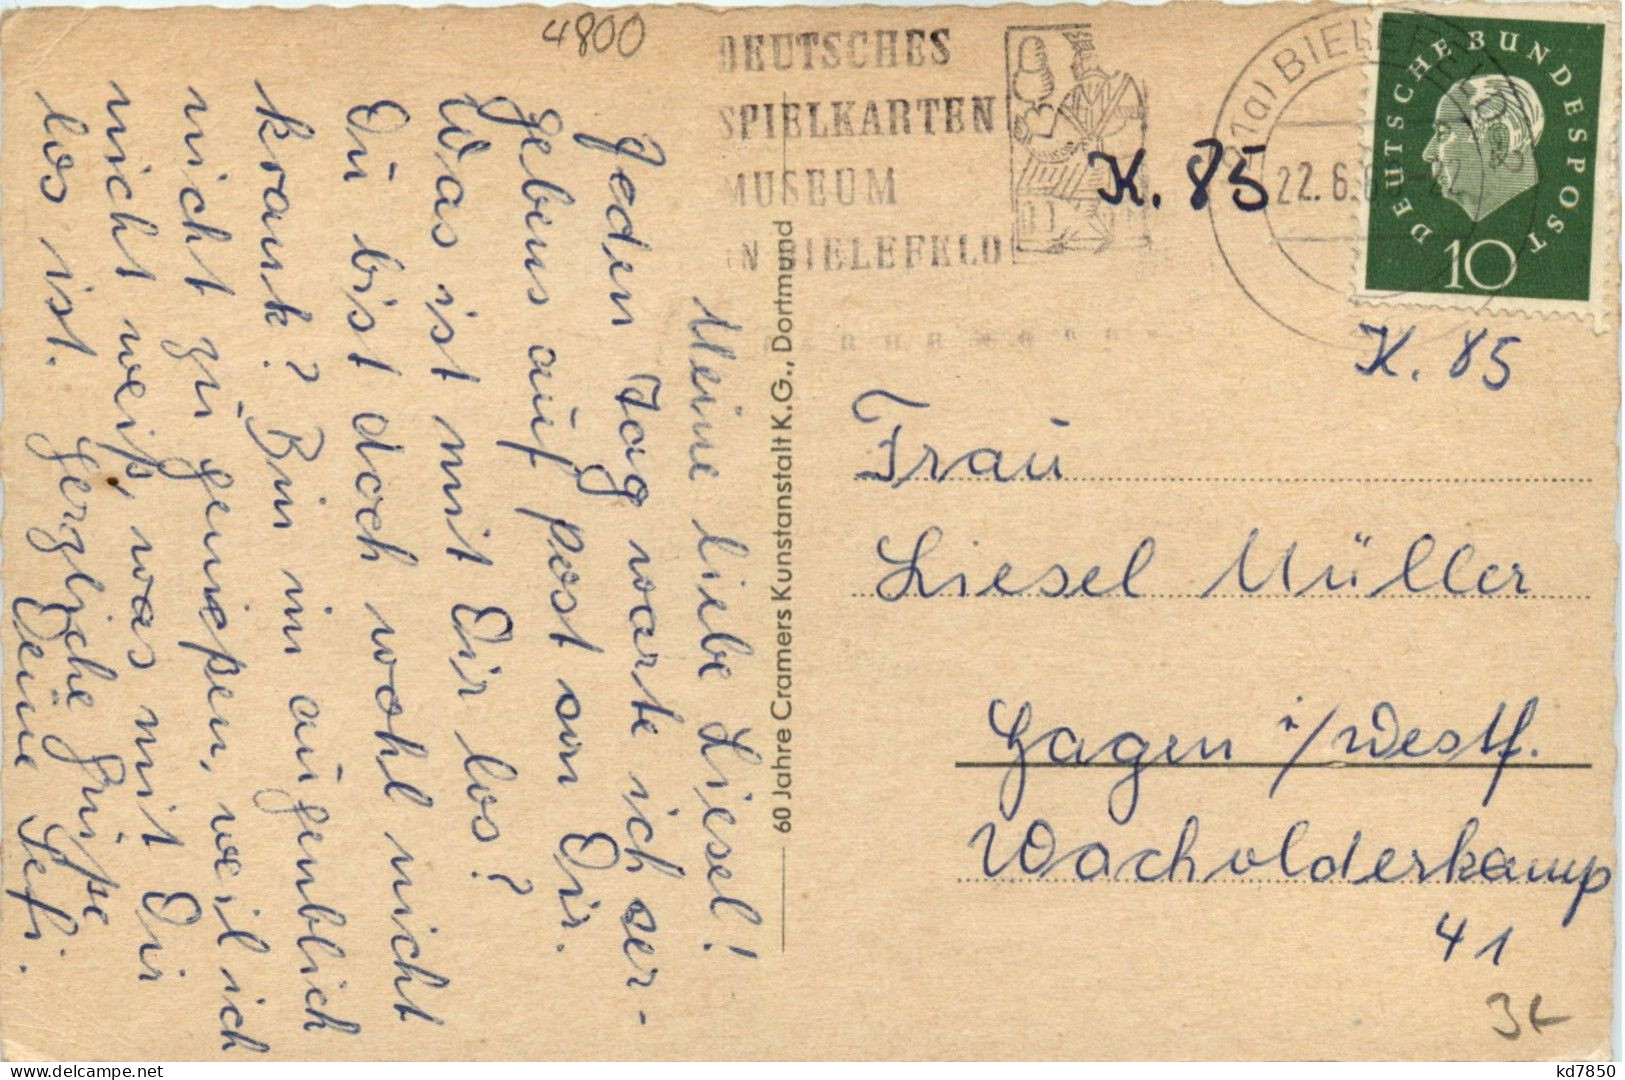 4800
DEUTSCHES
SPIELKARTEN
MUSEUM
IN BIELEFELD
BIELEFELD
22.6.6
DEUTSCHE BUNDESPOST
10
K. 85
K. 85
Meine liebe Liesel!
Jeden Tag warte ich ver-
gebens auf Post von Dir.
Was ist mit Dir los?
Du bist doch wohl nicht
krank? Bin im augenblich
nicht zu genießen, weil ich
nicht weiß, was mit Dir
los ist. Herzliche Grüße
Deine Sefi.
60 Jahre Cramers Kunstanstalt K.G., Dortmund
Frau
Liesel Müller
Hagen i/Westf.
Wacholderkamp
41
kd7850